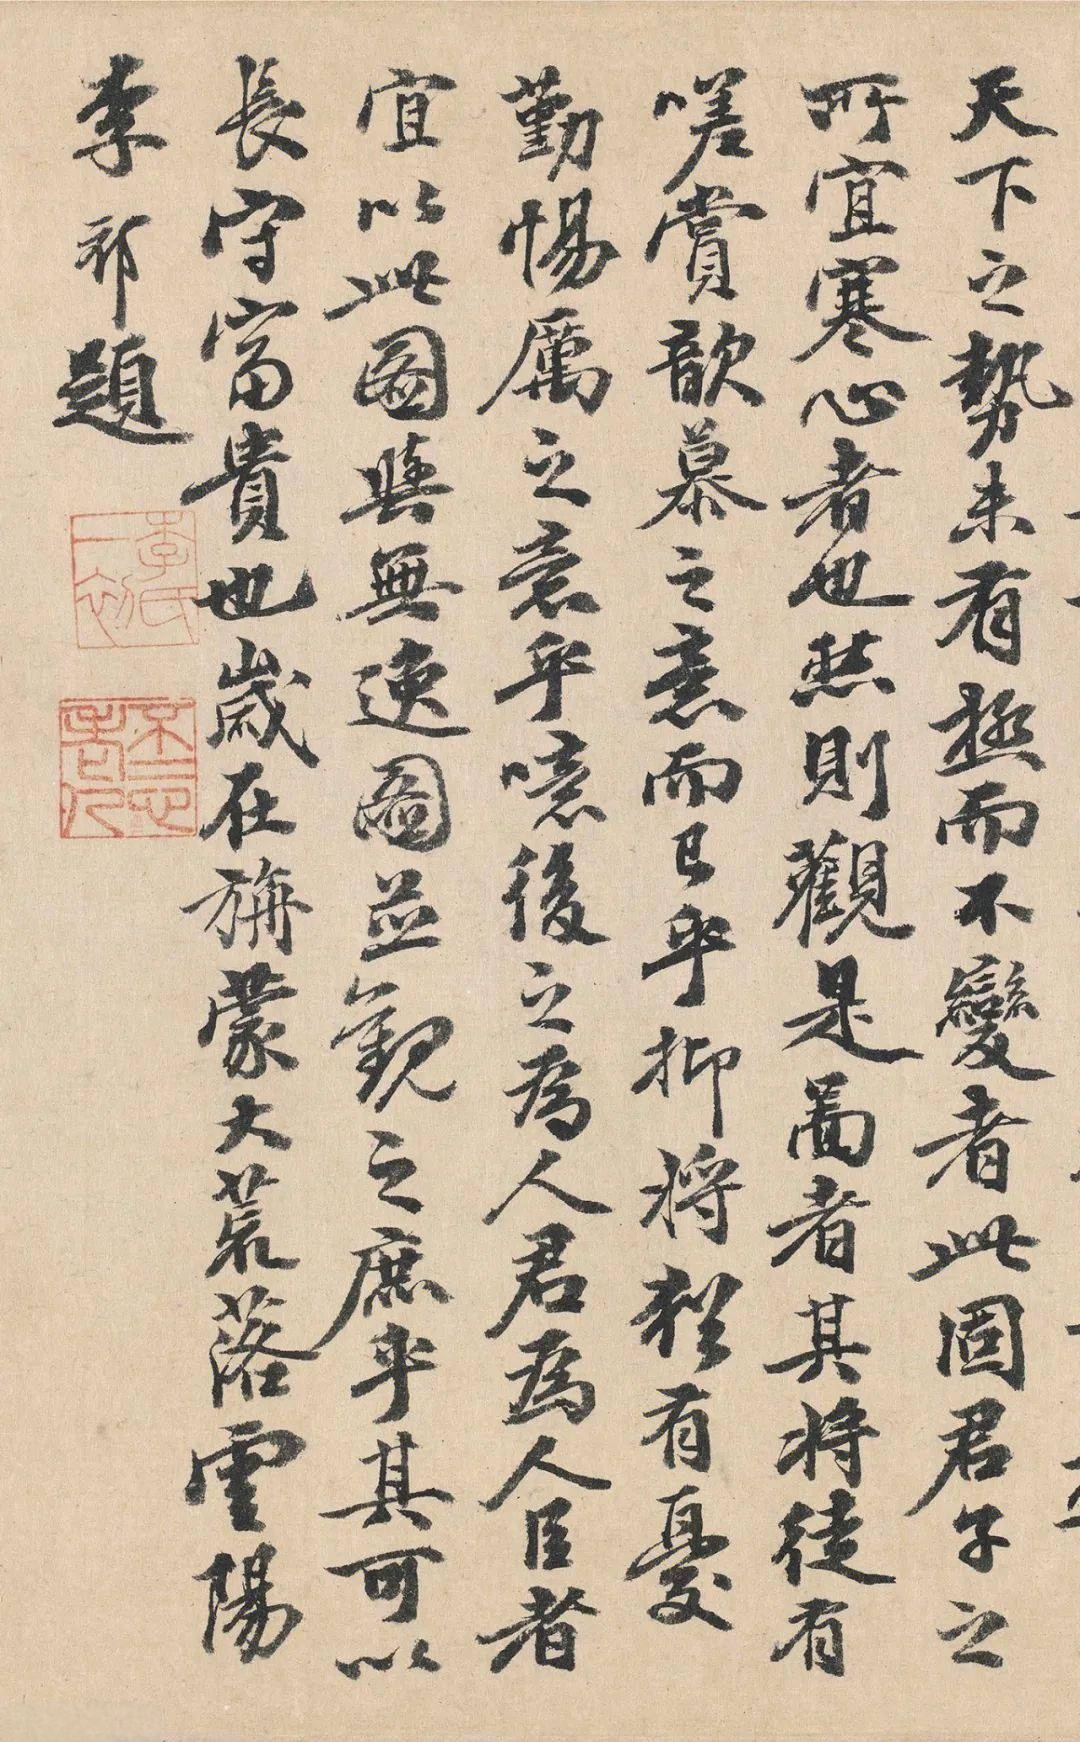 天下之勢未有極而不變者此固君子之
所宜寒心者也然則觀是啚者其將徒有
嗟賞歆慕之意而已乎抑將猶有憂
勤惕厲之意乎噫後之為人君為人臣者
宜以此圖與無逸圖並觀之庶乎其可以
長守富貴也歲在旃蒙大荒落雲陽
李祁題
李氏一初
不二心老人